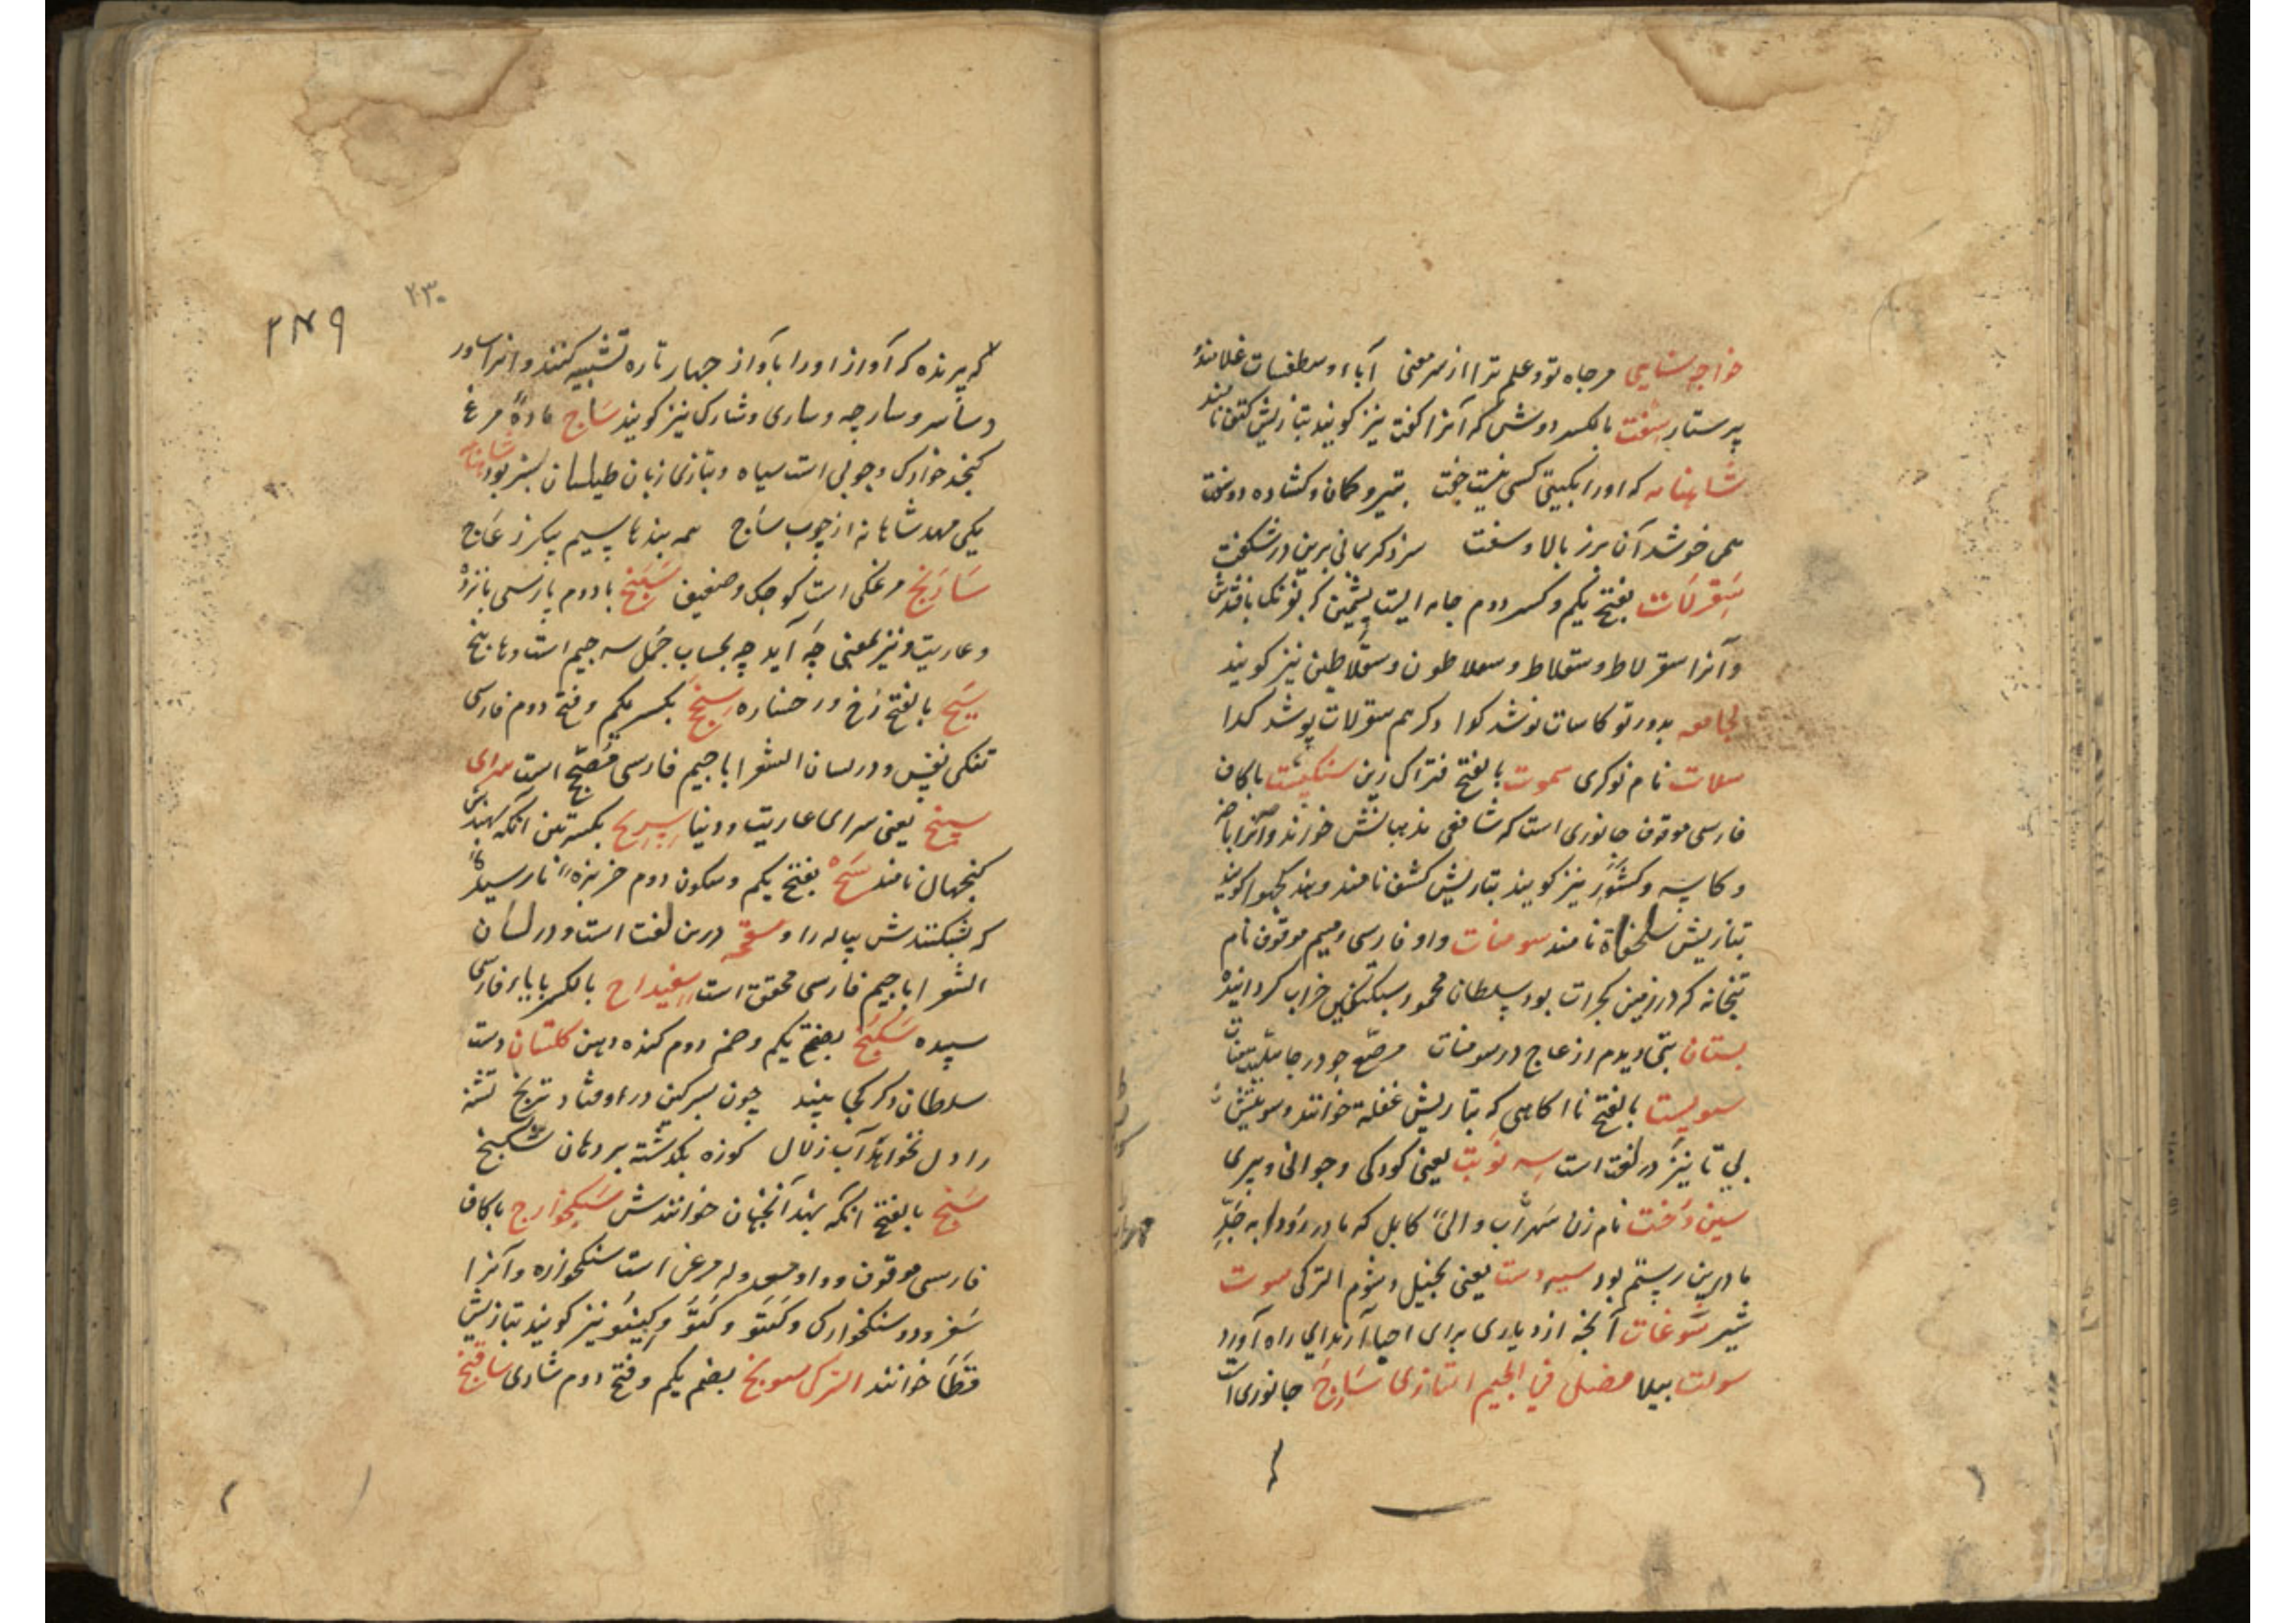 خواجه سنایی مر جاه تو و علم ترا از سر معنی آباء و سطقسات غلامند و
پرستار سفت بالکسر دوش که آنرا کفت نیز کویند بتازیش کتف نامند
شاهنامه که او را بکیتی کسی نیست جفت بتیر و کمان و کشاده دو سفت
همی خوشد آن برز بالا و سفت سزد کر بمانی برین در شکفت
سقرلات بفتح یکم و کسر دوم جامه ایست پشمین که بفرنک بافندش
و آنرا سقرلاط و سقلاط و سقلاطون و سقلاطین نیز کویند
لجامعه بدور تو کاسات نوشد کوا دکرهم سقرلات پوشد کدا
سلات نام نوکری سموت بالفتح فتراک زین سنکپشت باکاف
فارسی موقوف جانوری است که شافعی مذهبانش خورند و آنرا باخه
و کاسه و کشور نیز کویند بتازیش کشف نامند و هند کچهوا کویند
بتازیش سلحفاة نامند سومنات واو فارسی و میم موقوف نام
بتخانه که در زمین کجرات بود سلطان محمود سبکتکین خراب کردانیده
بستان بتی دیدم از عاج در سومنات مرصع چو در جاهلیت منات
سویست بالفتح نااکاهی که بتازیش غفلة خوانند و سویتش
بی تا نیز در لغت است سه نوبت یعنی کودکی و جوانی و پیری
سین دخت نام زن سهراب والی کابل که مادر رودابه جدّه
مادرین رستم بود سیه دست یعنی بخیل و شوم الترکی سوت
شیر سوغات آنچه از دیاری برای احبا آرند ای راه آورد
سولت بیلا فصل فی الجیم التازی سارج جانوری است
۲۳۰
۲۴۹
که پرنده که آواز او را بآواز چهار تاره تشبیه کنند و انرا سار
و سار و سارجه و ساری و شارک نیز کویند ساج ماده مرغ
کنجد خوارک و چوبی است سیاه و بتازی زبان طیلسان سبز بود شاهنامه
یکی مهد شاهانه از چوب ساج همه بندها سیم پیکر ز عاج
سارنج مرغکی است کوچک و ضعیف سپنج با دوم پارسی بانزده
و عاریت و نیز بمعنی چه آید چه بحساب جمل سه جیم است و ها پنج
سج بالفتح رخ و رخساره سنج بکسر یکم و فتح دوم فارسی
تنکی نفس و در لسان الشعرا با جیم فارسی مصحح است سرای
سپنج یعنی سرای عاریت و دنیا سرنج بکسرتین آنکه بهندش
کنجهال نامند سج بفتح یکم و سکون دوم خربزه نارسیده
که بشکنندش پیاله را و سفچه درین لغت است و در لسان
الشعرا با جیم فارسی محقق است سفیداج بالکسر با باء فارسی
سپیده سکنج بفتح یکم و ضم دوم کنده دهن کلستان دست
سلطان دکر کجا بیند چون بسرکین در اوفتاد ترنج تشنه
را دل نخواهد آب زلال کوزه بکذشته بر دهان سکنج
سنج بالفتح آنکه بهند آنجهان خوانندش سنکخوارج باکاف
فارسی موقوف و واو معدوله مرغی است سنکخواره و آنرا
سفرود و سنکخوارک و کنتو و کیتو و کیفو نیز کویند بتازیش
قطا خوانند الترکی سونج بضم یکم و فتح دوم شادی سافنج